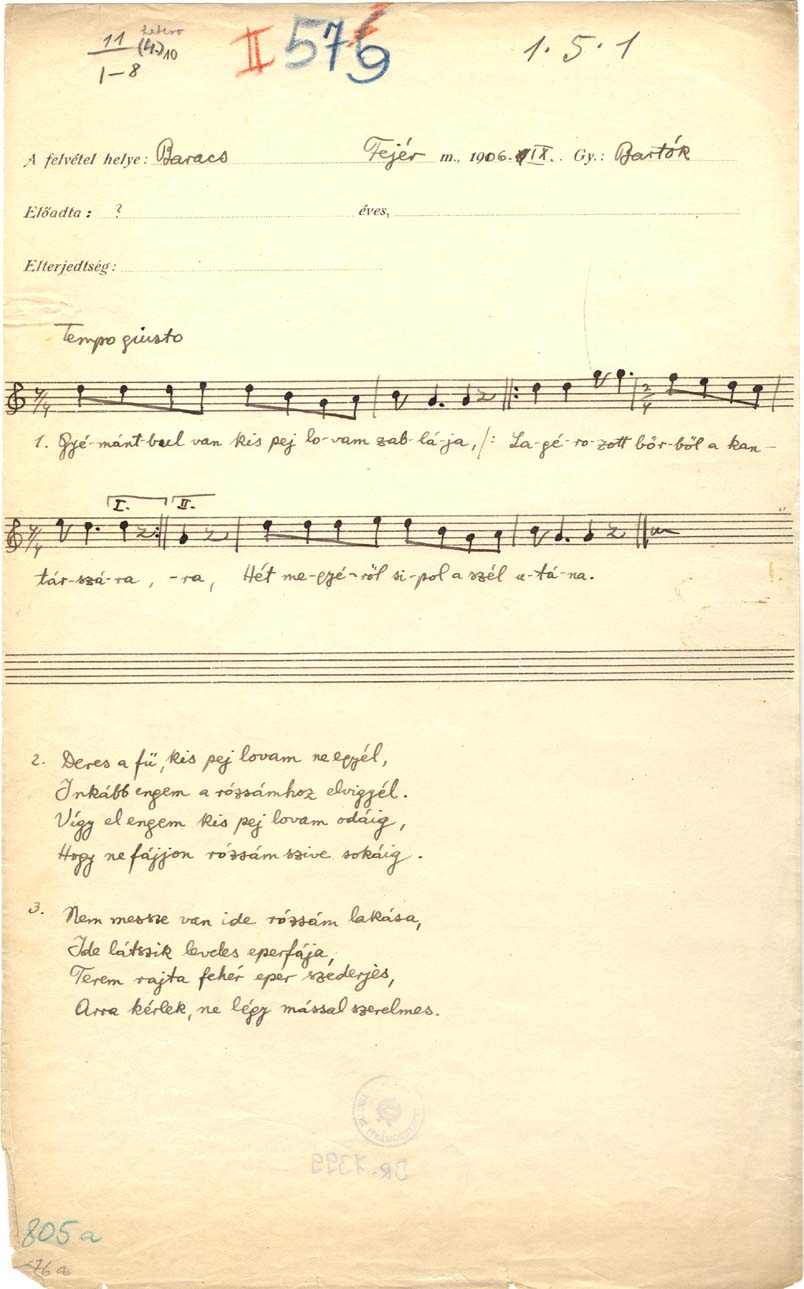 11 hetero
(4.) 10
1–8
II 579
1 · 5 · 1
A felvétel helye: Baracs Fejér m., 1906. IX. Gy.: Bartók
Előadta: ? éves,
Elterjedtség:
Tempo giusto
7/4 2/4
1. Gyé-mánt-bul van kis pej lo-vam zab-lá-ja, /: La-gé-ro-zott bőr-ből a kan-
I. II.
7/4
tár-szá-ra, -ra, Hét me-gyé-ről si-pol a szél u-tá-na.
2. Deres a fű, kis pej lovam ne egyél,
Inkább engem a rózsámhoz elvigyél.
Vígy el engem kis pej lovam odáig,
Hogy ne fájjon rózsám szive sokáig.
3. Nem messze van ide rózsám lakása,
Ide látszik leveles eperfája,
Terem rajta fehér eper szederjès,
Arra kérlek, ne légy mással szerelmes.
DR. 7399
805a
76a